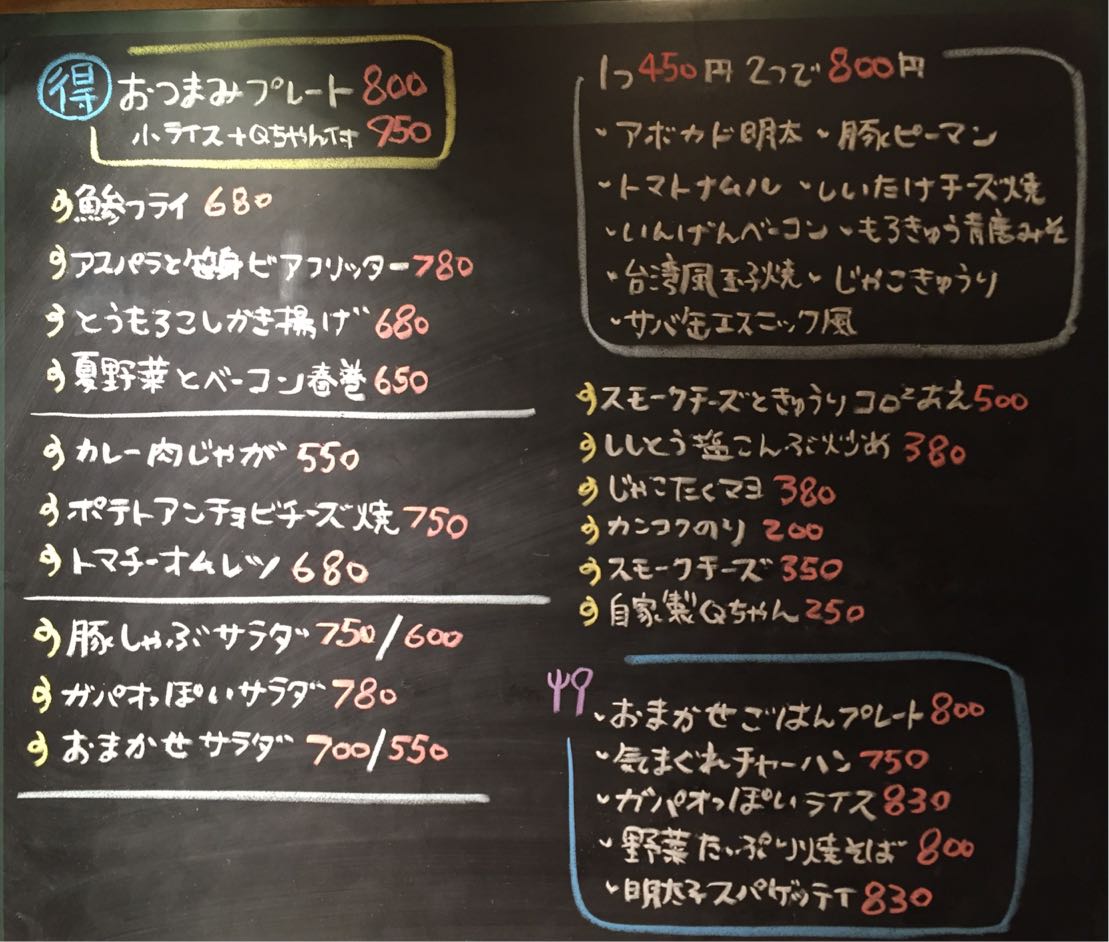 得 おつまみプレート 800
小ライス+Qちゃん付 950
鯵フライ 680
アスパラと笹身ビアフリッター 780
とうもろこしかき揚げ 680
夏野菜とベーコン春巻 650
カレー肉じゃが 550
ポテトアンチョビチーズ焼 750
トマチーオムレツ 680
豚しゃぶサラダ 750/600
ガパオっぽいサラダ 780
おまかせサラダ 700/550
1つ450円 2つで800円
・アボカド明太 ・豚ピーマン
・トマトナムル ・しいたけチーズ焼
・いんげんベーコン ・もろきゅう青唐みそ
・台湾風玉子焼 ・じゃこきゅうり
・サバ缶エスニック風
スモークチーズときゅうりコロ²あえ 500
ししとう塩こんぶ炒め 380
じゃこたくマヨ 380
カンコクのり 200
スモークチーズ 350
自家製Qちゃん 250
・おまかせごはんプレート 800
・気まぐれチャーハン 750
・ガパオっぽいライス 830
・野菜たっぷり焼そば 800
・明太子スパゲッティ 830